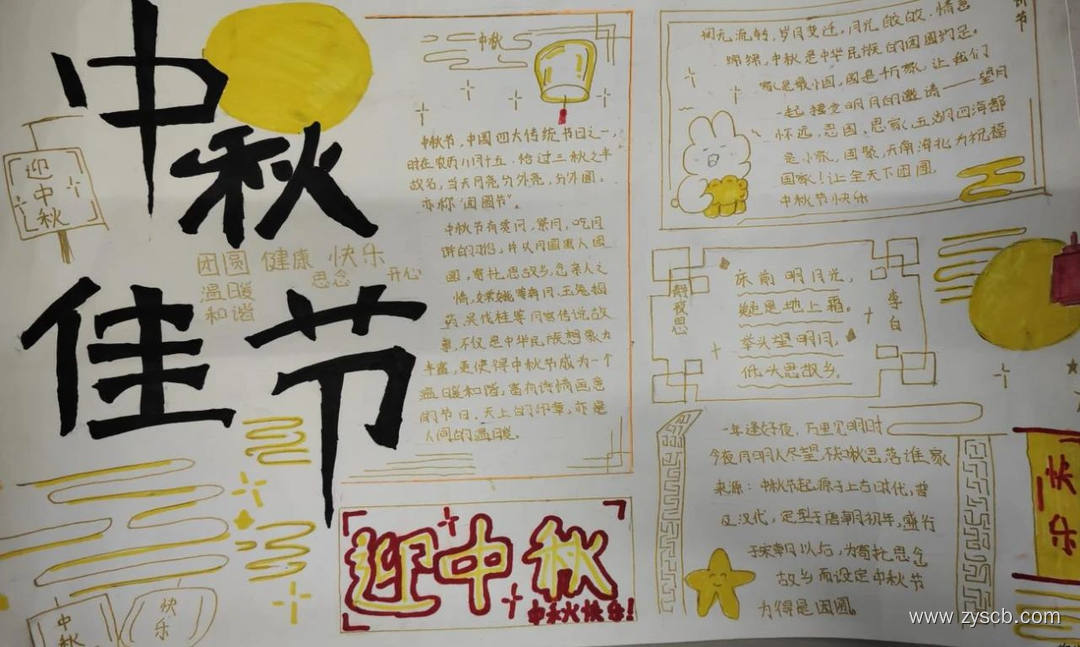 中秋
佳节
迎
中
秋
团圆 健康 快乐
思念 开心
温暖
和谐
中秋
中秋节,中国四大传统节日之一,
时在农历八月十五,恰过三秋之半
故名,当天月亮分外亮,分外圆。
亦称"团圆节"。
中秋节有赏月,祭月,吃月
饼的习俗,
圆,寄托思故乡,思亲人之
情,嫦娥奔月,玉兔捣
药,吴伐桂等月宫传说故
事,不仅是中华民族想象力
丰富,更使得中秋节成为一个
温暖和谐,富有诗情画意
的节日,天上的
人间的温暖。
迎中秋
中秋快乐!
流转,岁月变迁,月光皎皎,情意
绵绵,中秋是中华民族的团圆约定。
家是最小国,国是千万家,让我们
一起接受明月的邀请——望月
怀远,思国,思家,五湖四海都
是小家,国聚,天南海北为祝福
国家!让全天下团圆,
中秋节快乐
节
静夜思
李白
床前明月光,
疑是地上霜。
举头望明月,
低头思故乡。
一年逢好夜,万里见明时
今夜月明人尽望,不知秋思落谁家
来源:中秋节起源于上古时代,普
及汉代,定型于唐朝初年,盛行
于宋朝以后,为寄托思念
故乡而设定中秋节
为得是团圆。
快
乐
中
秋
快
乐
www.zyscb.com